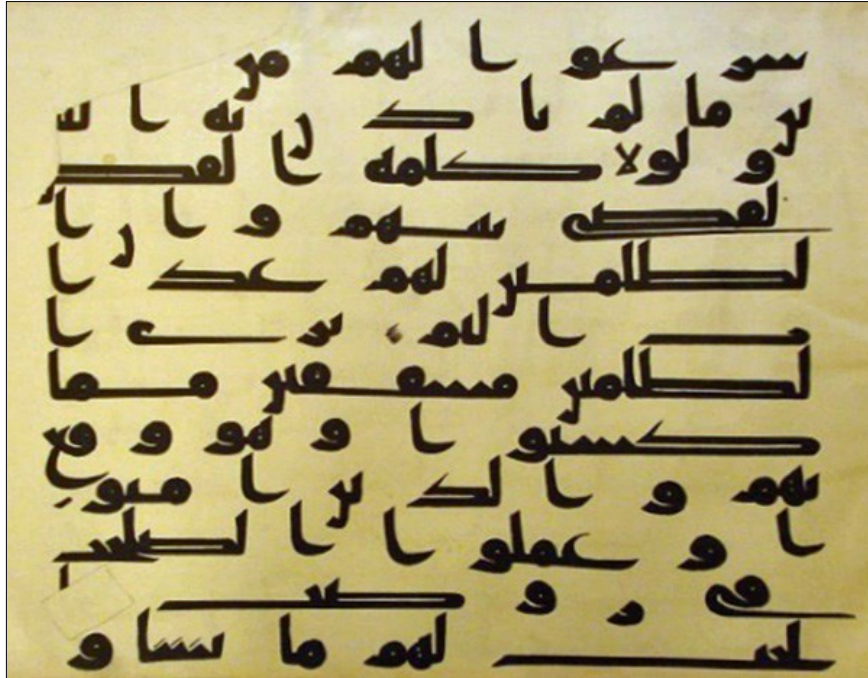 شرعوا لهم من
ين ما لم يأذن به الله
ولولا كلمة الفصل
لقضي بينهم وإن ا
لظلمين لهم عذا
ب أليم ترى ا
لظلمين مشفقين مما
كسبوا وهو وقع
بهم والذين امنو
ا وعملوا الصلحت
في روضت ا
لجنت لهم ما يشاو